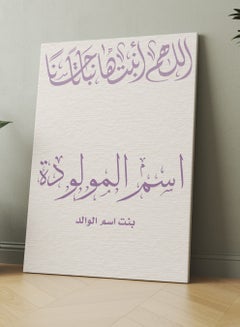 اللهم أنبتها نباتا حسنا
اسم المولودة
بنت اسم الوالد